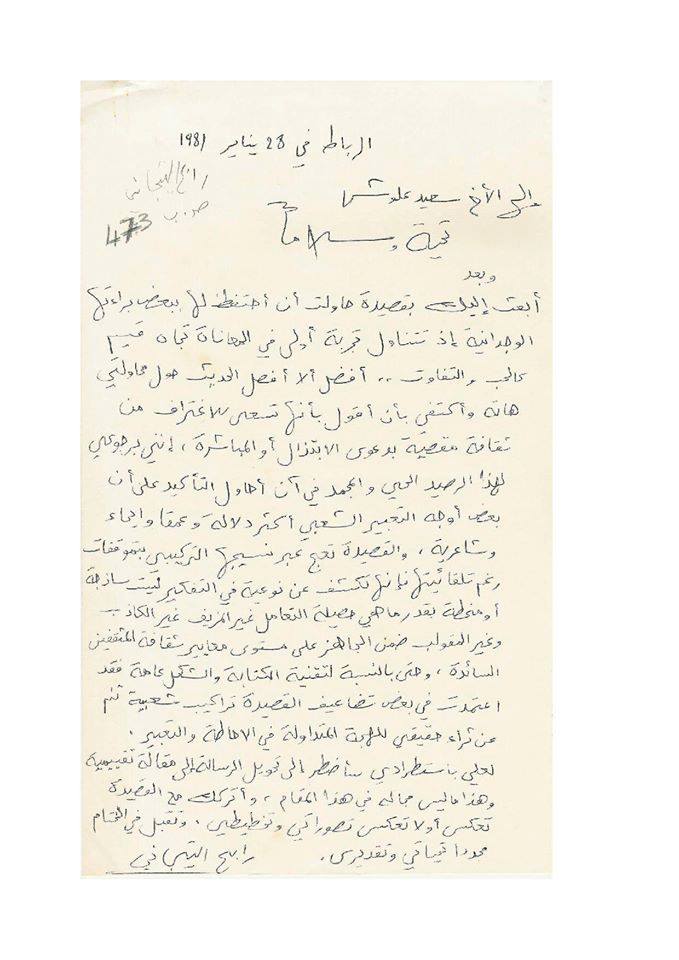 الرباط في 28 يناير 1981
رابح التيجاني
ص.ب
473
إلى الأخ سعيد علوش
تحية وسلاما
وبعد
أبعث إليك بقصيدة حاولت أن أحتفظ لها ببعض براءتها
الوجدانية إذ تتناول تجربة أولى في المعاناة تجاه قيم
كالحب والتفاوت .. أفضل ألا أفصل الحديث حول محاولتي
هاته وأكتفي بأن أقول بأنها تسعى للاغتراف من
ثقافة مقصية بدعوى الابتذال أو المباشرة ، إنني برجوعي
لهذا الرصيد الحي والمجمد في آن أحاول التأكيد على أن
بعض أوجه التعبير الشعبي أكثر دلالة وعمقا وإيحاء
وشاعرية ، والقصيدة تعج عبر نسيجها التركيبي بتموقفات
رغم تلقائيتها فإنها تكشف عن نوعية في التفكير ليست ساذجة
أو منحطة بقدر ما هي حصيلة التعامل غير المزيف غير الكاذب
وغير المقولب ضمن الجاهز على مستوى معايير ثقافة المثقفين
السائدة ، وحتى بالنسبة لتقنية الكتابة والشكل عامة فقد
اعتمدت في بعض تضاعيف القصيدة تراكيب شعبية تنم
عن ثراء حقيقي للهجة المتداولة في الاحاطة والتعبير .
لعلي باستطرادي سأضطر الى تحويل الرسالة إلى مقالة تقييمية
وهذا ما ليس مجاله في هذا المقام ، وأتركك مع القصيدة
تعكس أو لا تعكس تصوراتي وتخطيطي . وتقبل في الختام
مجددا تحياتي وتقديري . رابح التيجاني